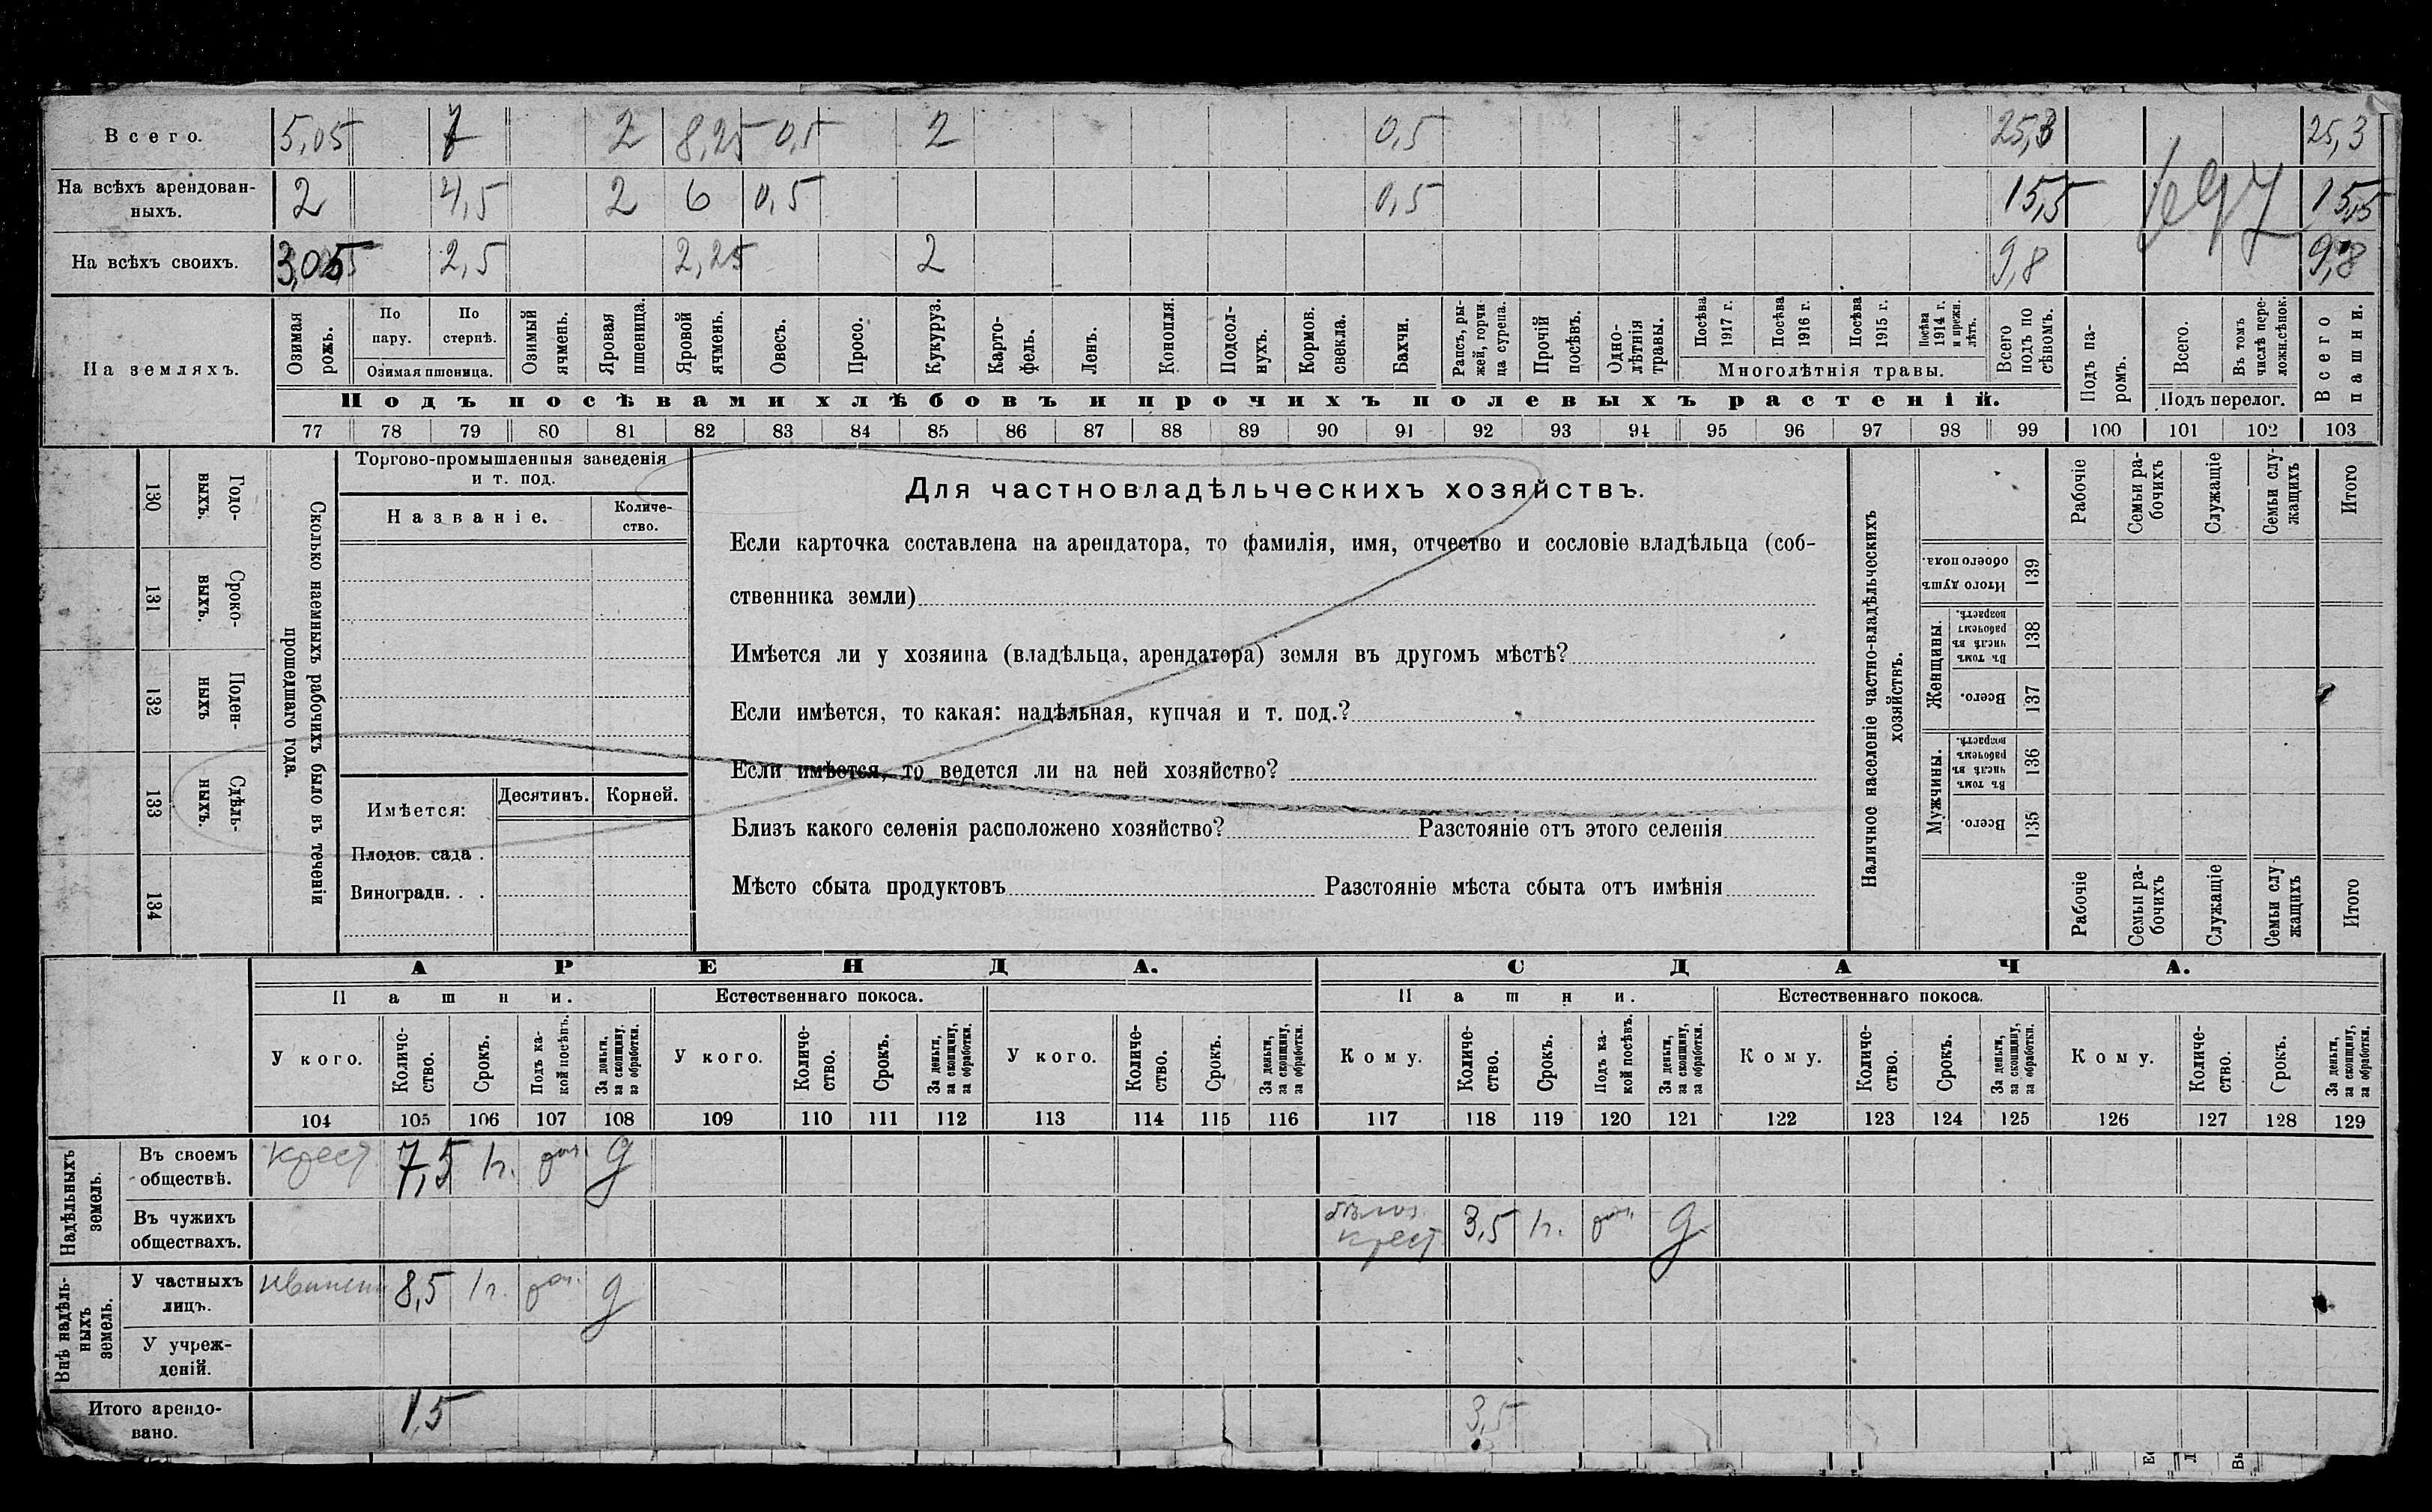 Всего. 5,05 7 2 8,25 0,5 2 0,5 25,3 25,3
На всѣхъ арендован-
ныхъ. 2 4,5 2 6 0,5 0,5 15,5 15,5
На всѣхъ своихъ. 3,05 2,5 2,25 2 9,8 9,8
На земляхъ.
Озимая рожь.
По пару.
По стернѣ.
Озимая пшеница.
Озимый ячмень.
Яровая пшеница.
Яровой ячмень.
Овесъ.
Просо.
Кукуруз.
Карто-
фель.
Ленъ.
Конопля.
Подсол-
нухъ.
Кормов.
свекла.
Бахчи.
Рапсъ, ры-
жей, горчи
ца сурепа.
Прочій
посѣвъ.
Одно-
лѣтнія
травы.
Посѣва
1917 г.
Посѣва
1916 г.
Посѣва
1915 г.
Посѣва
1914 г.
и прежн.
лѣтъ.
Многолѣтнія травы.
Всего
подъ по
сѣвомъ.
Подъ па-
ромъ.
Всего.
Въ томъ
числѣ пере-
ложн.сѣнок.
Подъ перелог.
Всего
пашни.
Подъ посѣвами хлѣбовъ и прочихъ полевыхъ растеній.
77 78 79 80 81 82 83 84 85 86 87 88 89 90 91 92 93 94 95 96 97 98 99 100 101 102 103
130 Годо-
выхъ.
131 Сроко-
выхъ.
132 Поден-
ныхъ
133 Сдѣль-
ныхъ.
134
Сколько наемныхъ рабочихъ было въ теченіи
прошедшаго года.
Торгово-промышленныя заведенія
и т. под.
Названіе.
Количе-
ство.
Имѣется:
Десятинъ.
Корней.
Плодов. сада .
Виноградн. . .
Для частновладѣльческихъ хозяйствъ.
Если карточка составлена на арендатора, то фамилія, имя, отчество и сословіе владѣльца (соб-
ственника земли)
Имѣется ли у хозяина (владѣльца, арендатора) земля въ другомъ мѣстѣ?
Если имѣется, то какая: надѣльная, купчая и т. под.?
Если имѣется, то ведется ли на ней хозяйство?
Близъ какого селенія расположено хозяйство? Разстояніе отъ этого селенія
Мѣсто сбыта продуктовъ Разстояніе мѣста сбыта отъ имѣнія
Наличное населеніе частно-владѣльческихъ
хозяйствъ.
Рабочіе
Семьи ра-
бочихъ
Служащіе
Семьи слу-
жащихъ
Итого
Итого душъ
обоего пола. 139
Женщины.
Въ томъ
числѣ въ
рабочемъ
возрастѣ. 138
Всего. 137
Мужчины.
Въ томъ
числѣ въ
рабочемъ
возрастѣ. 136
Всего. 135
Рабочіе
Семьи ра-
бочихъ
Служащіе
Семьи слу
жащихъ
Итого
АРЕНДА. СДАЧА.
Пашни. Естественнаго покоса. Пашни. Естественнаго покоса.
У кого.
Количе-
ство.
Срокъ.
Подъ ка-
кой посѣвъ.
За деньги,
за скопщину,
за обработки.
У кого.
Количе-
ство.
Срокъ.
За деньги,
за скопщину,
за обработки.
У кого.
Количе-
ство.
Срокъ.
За деньги,
за скопщину,
за обработки.
Кому.
Количе-
ство.
Срокъ.
Подъ ка-
кой посѣвъ.
За деньги,
за скопщину,
за обработки.
Кому.
Количе-
ство.
Срокъ.
За деньги,
за скопщину,
за обработки.
Кому.
Количе-
ство.
Срокъ.
За деньги,
за скопщину,
за обработки.
104 105 106 107 108 109 110 111 112 113 114 115 116 117 118 119 120 121 122 123 124 125 126 127 128 129
Надѣльныхъ
земель.
Въ своемъ
обществѣ. крест. 7,5 1г. д
Въ чужихъ
обществахъ. крест 3,5 1г. д
Внѣ надѣль-
ныхъ
земель.
У частныхъ
лицъ. 8,5 1г. д
У учреж-
деній.
Итого арендо-
вано. 15 3,5